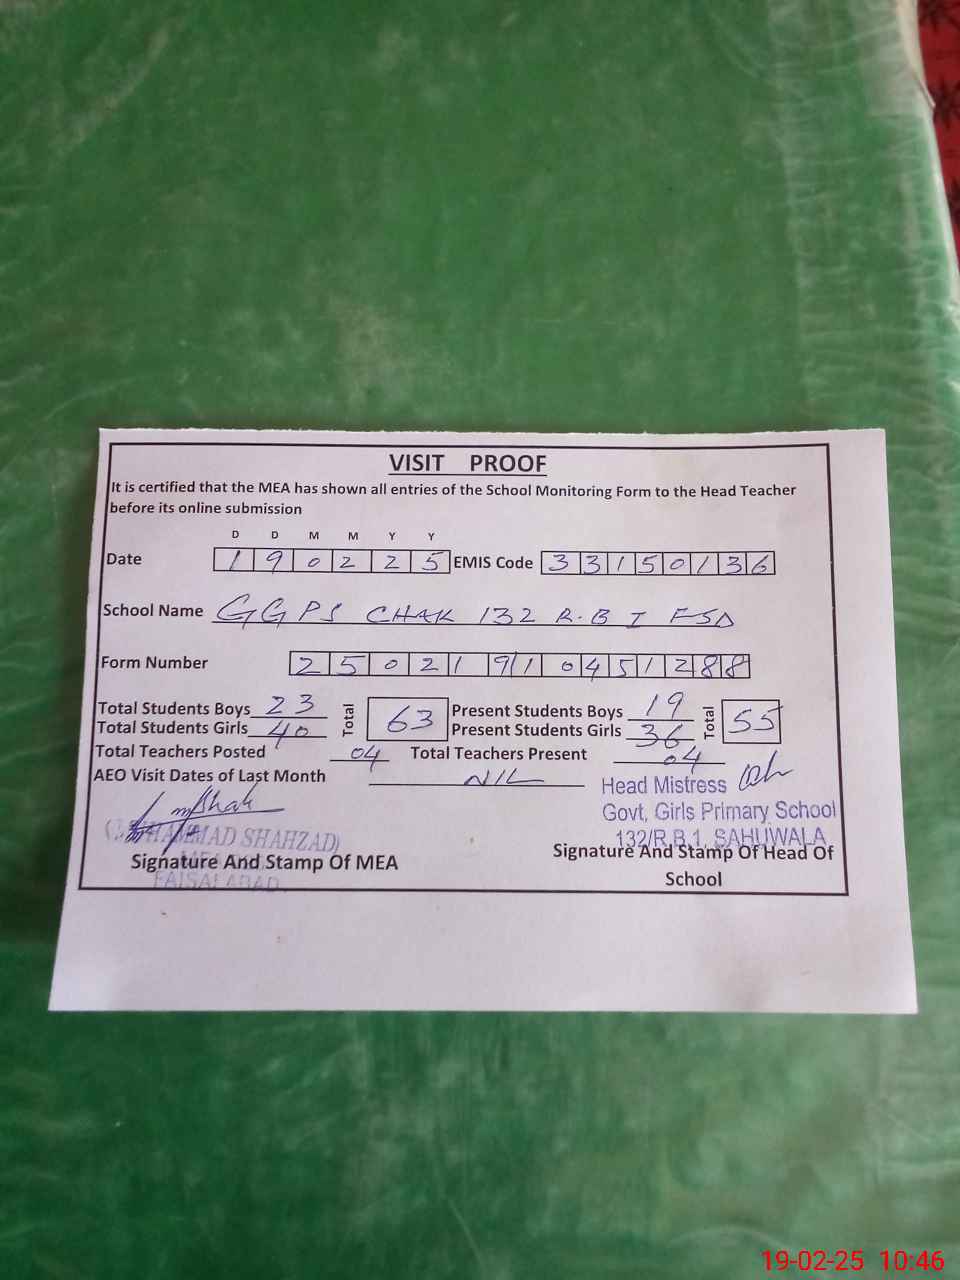 VISIT PROOF
It is certified that the MEA has shown all entries of the School Monitoring Form to the Head Teacher
before its online submission
D D M M Y Y
Date 1 9 0 2 2 5 EMIS Code 3 3 1 5 0 1 3 6
School Name GGPS CHAK 132 R.B I FSD
Form Number 2 5 0 2 1 9 1 0 4 5 1 2 8 8
Total Students Boys 23 Total 63 Present Students Boys 19 Total 55
Total Students Girls 40 Present Students Girls 36
Total Teachers Posted 04 Total Teachers Present 04
AEO Visit Dates of Last Month NIL
Head Mistress
Govt, Girls Primary School
132/R.B.1, SAHUWALA
SHAHZAD)
Signature And Stamp Of MEA
FAISALABAD
Signature And Stamp Of Head Of
School
19-02-25 10:46